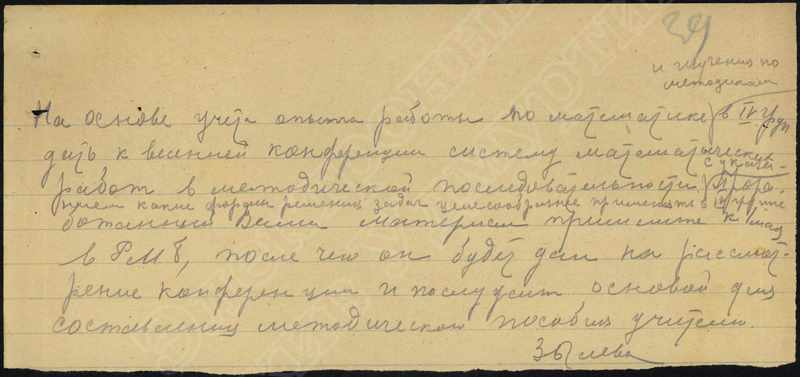 39
и изучения по
методикам
На основе учёта опыта работы по математике в IV груп
дать к весенней конференции систему математических
с указа-
работ в методической последовательности. Прора-
нием какие формы решения задач целесообразнее применять в IV группе
ботанный Вами материал пришлите к 1 мая
в РМБ, после чего он будет дан на рассмот-
рение конференции и послужит основой для
составления методического пособия учителю.